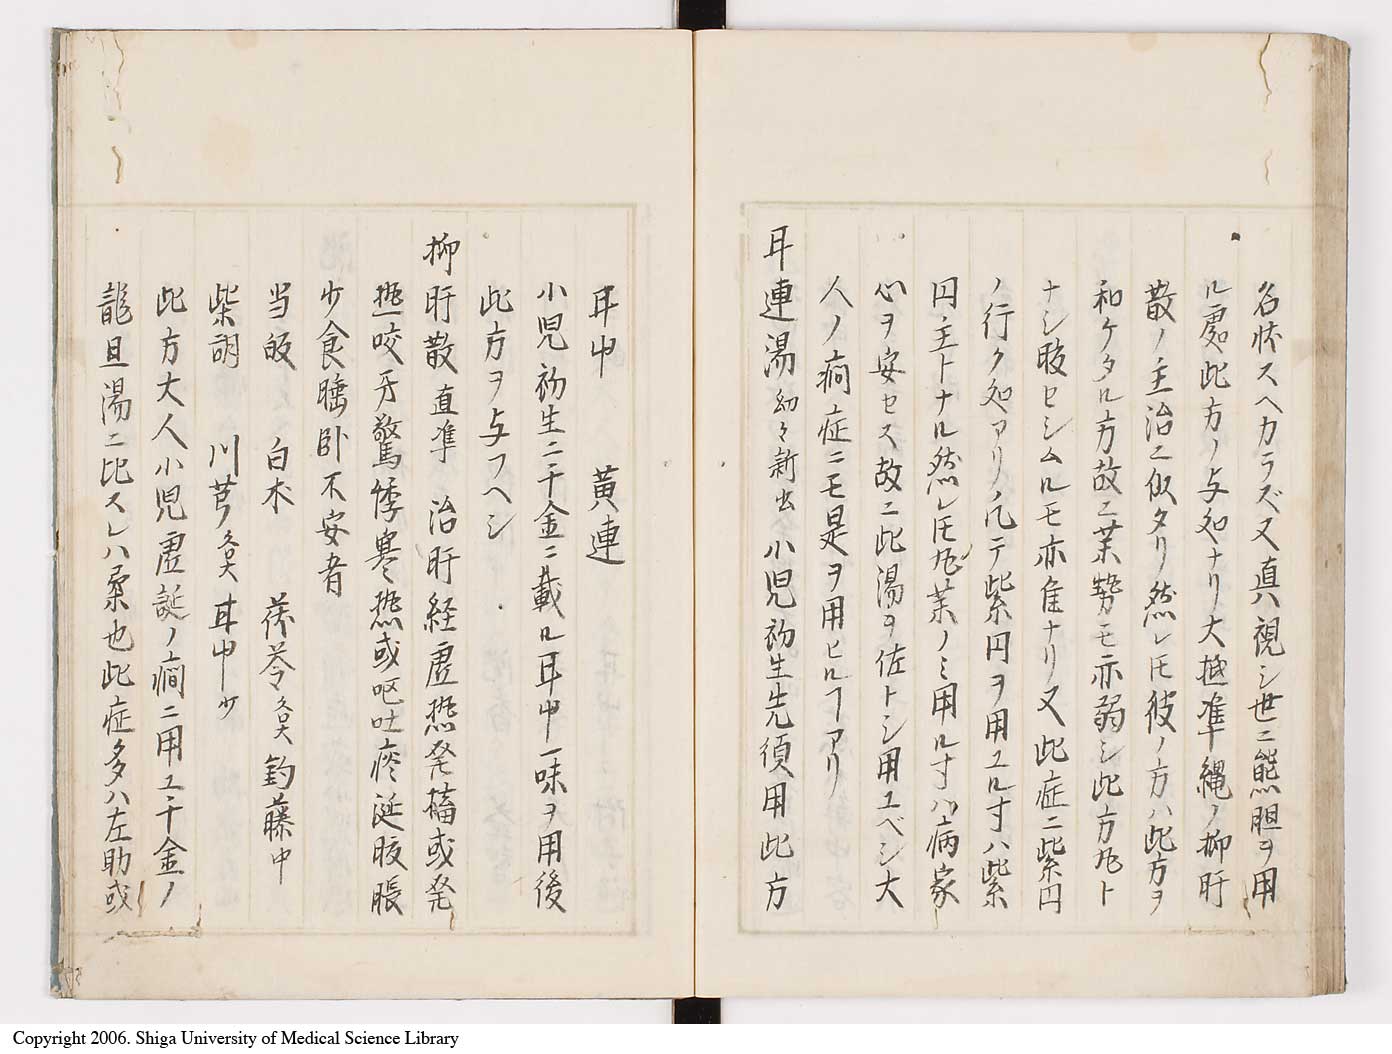 名状スヘカラズ又真視シ世ニ熊胆ヲ用
ル処此方ノ与処ナリ大抵準縄ノ抑肝
散ノ主治ニ似タリ然レ𪜈彼ノ方ハ此方ヲ
和ケタル方故ニ薬勢モ亦弱シ此方九ト
ナシ服セシムルモ亦佳ナリ又此症ニ紫円
ノ行ク処アリ凡テ紫円ヲ用ユル寸ハ紫
円主トナル然レ𪜈丸薬ノミ用ル寸ハ病家
心ヲ安セス故ニ此湯ヲ佐トシ用ユベシ大
人ノ癇症ニモ是ヲ用ヒルヿアリ
耳連湯 幼々新出 小児初生先須用此方
耳中 黄連
小児初生ニ千金ニ載ル耳中一味ヲ用後
此方ヲ与フヘシ
抑肝散 直準 治肝経虚熱発搐或発
熱咬牙驚悸寒熱或呕吐痰涎腹脹
少食睡卧不安者
当皈 白朮 茯苓各大 釣藤中
柴胡 川芎各大 耳中少
此方大人小児虚誕ノ癇ニ用ユ千金ノ
龍旦湯ニ比スレハ柔也此症多ハ左助或
Copyright 2006. Shiga University of Medical Science Library